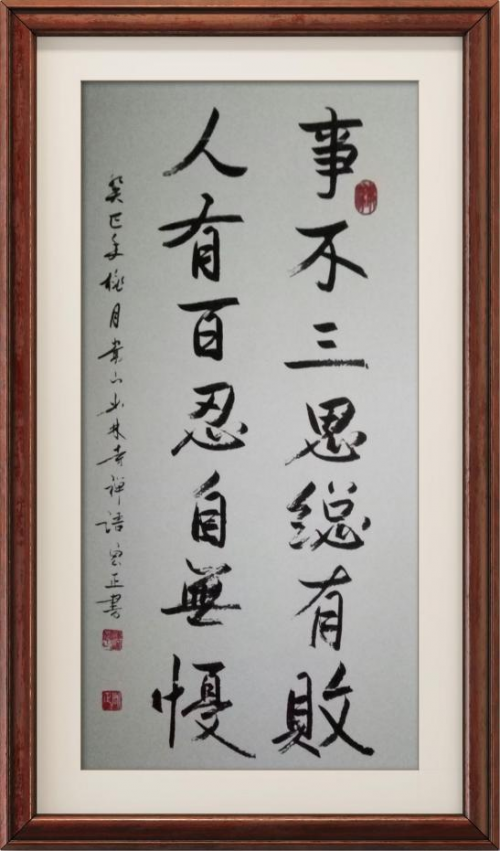 事不三思総有敗
人有百忍自無懮
癸巳年桃月嵩山少林寺禅語正書